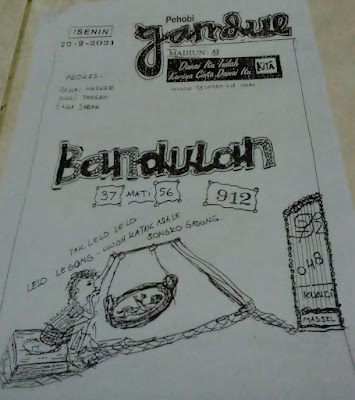 SENIN
20-9-2021
Pehobi
Jamdue
MADIUN-AJ
Damai Itu Indah
Karena Cinta Damai Itu
KITA
PROKES:
PAKAI MASKER
CUCI TANGAN
JAGA JARAK
Bandulan
37 MATI 56
912
TAK LELO LELO
LELO LEGONG - UWOH KATAK ASALE
SONGKO GEDUNG.
048
KUNCI
MADSEL